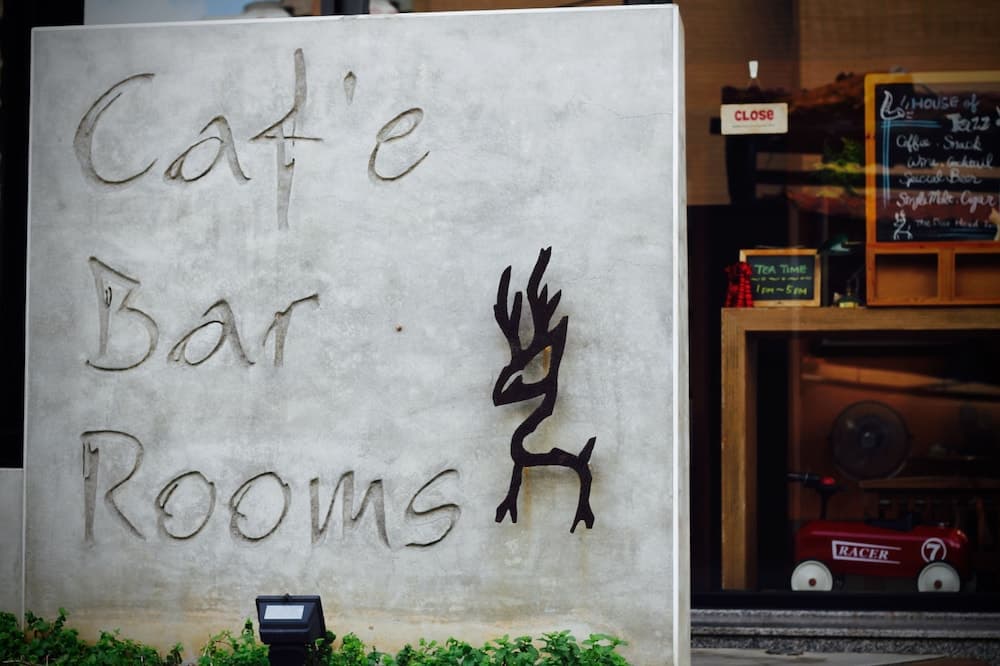 Caf'e
Bar
Rooms
CLOSE
HOUSE of
Jazz
Coffee . Snack
Wine. Cocktail
Special Beer
Single Malt. Cigar
TEA TIME
1PM ~ 5PM
RACER
7